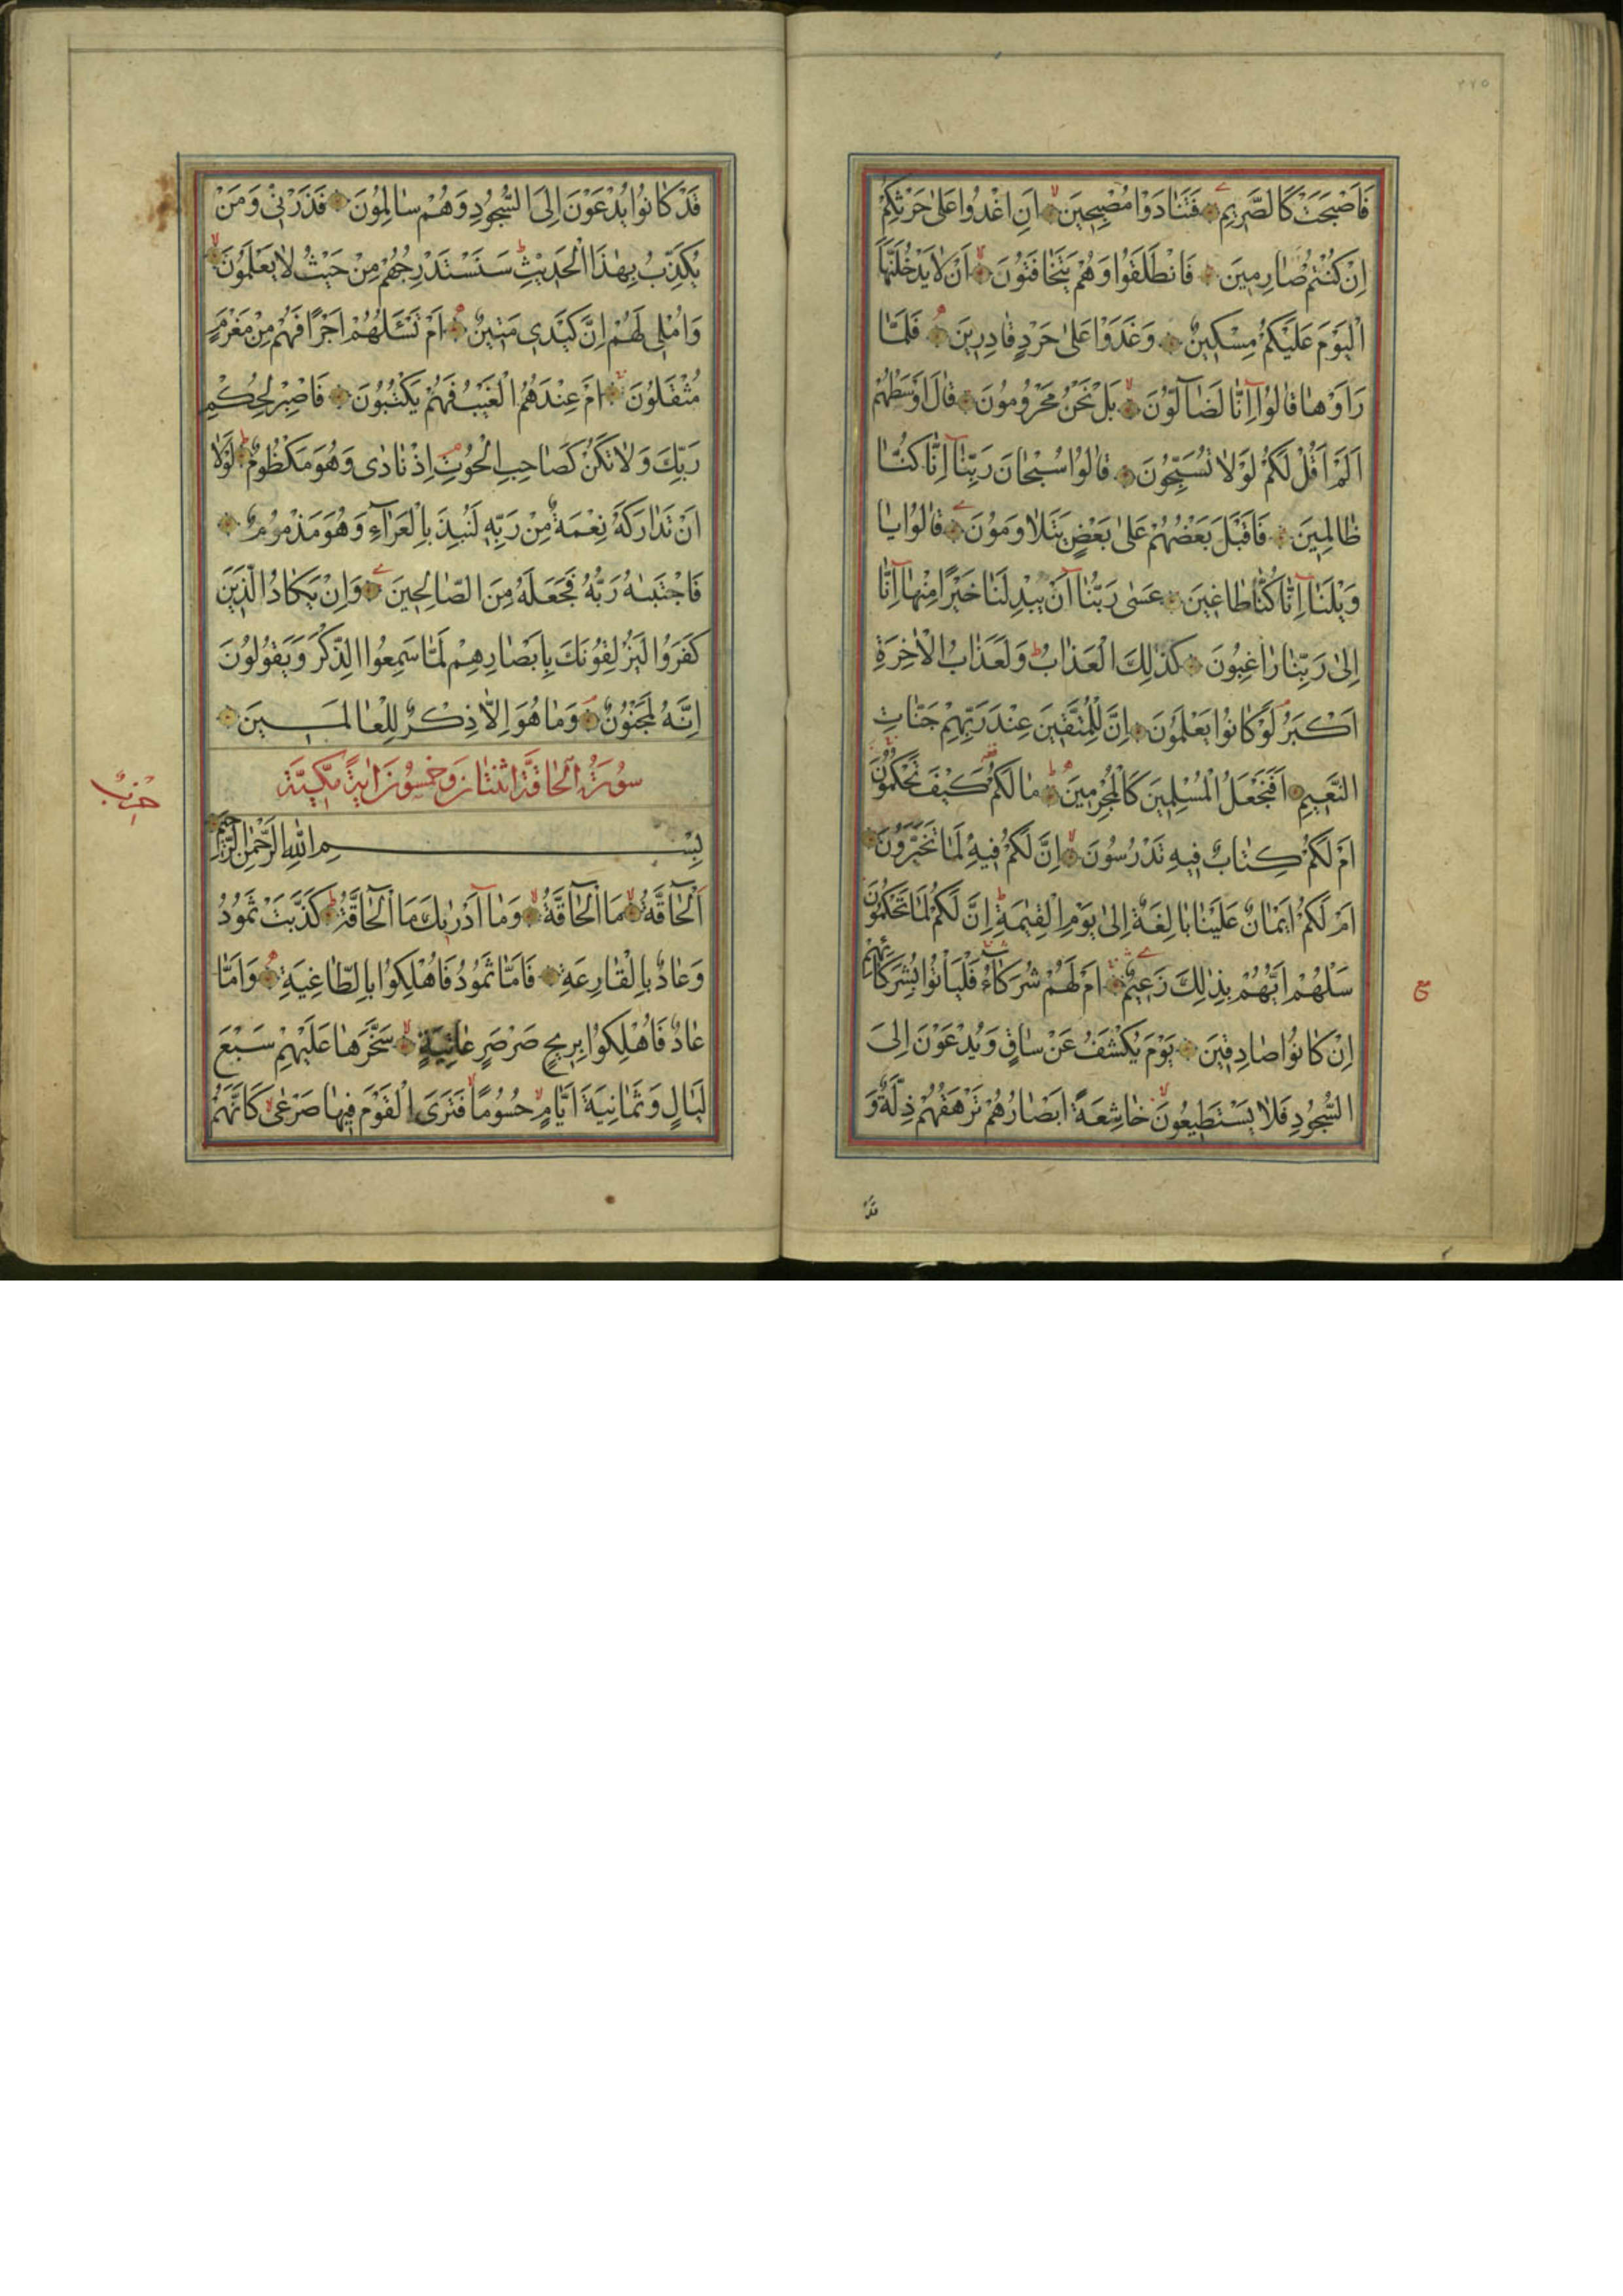 ٢٧٥
فَاَصْبَحَتْ كَالصَّرِيمِ فَتَنَادَوْا مُصْبِحِينَ اَنِ اغْدُوا عَلٰى حَرْثِكُمْ
اِنْ كُنْتُمْ صَارِمِينَ فَانْطَلَقُوا وَهُمْ يَتَخَافَتُونَ اَنْ لَا يَدْخُلَنَّهَا
الْيَوْمَ عَلَيْكُمْ مِسْكِينٌ وَغَدَوْا عَلٰى حَرْدٍ قَادِرِينَ فَلَمَّا
رَاَوْهَا قَالُوا اِنَّا لَضَآلُّونَ بَلْ نَحْنُ مَحْرُومُونَ قَالَ اَوْسَطُهُمْ
اَلَمْ اَقُلْ لَكُمْ لَوْلَا تُسَبِّحُونَ قَالُوا سُبْحَانَ رَبِّنَا اِنَّا كُنَّا
ظَالِمِينَ فَاَقْبَلَ بَعْضُهُمْ عَلٰى بَعْضٍ يَتَلَاوَمُونَ قَالُوا يَا
وَيْلَنَا اِنَّا كُنَّا طَاغِينَ عَسٰى رَبُّنَا اَنْ يُبْدِلَنَا خَيْرًا مِنْهَا اِنَّا
اِلٰى رَبِّنَا رَاغِبُونَ كَذٰلِكَ الْعَذَابُ وَلَعَذَابُ الْاٰخِرَةِ
اَكْبَرُ لَوْ كَانُوا يَعْلَمُونَ اِنَّ لِلْمُتَّقِينَ عِنْدَ رَبِّهِمْ جَنَّاتِ
النَّعِيمِ اَفَنَجْعَلُ الْمُسْلِمِينَ كَالْمُجْرِمِينَ مَا لَكُمْ كَيْفَ تَحْكُمُونَ
اَمْ لَكُمْ كِتَابٌ فِيهِ تَدْرُسُونَ اِنَّ لَكُمْ فِيهِ لَمَا تَخَيَّرُونَ
اَمْ لَكُمْ اَيْمَانٌ عَلَيْنَا بَالِغَةٌ اِلٰى يَوْمِ الْقِيٰمَةِ اِنَّ لَكُمْ لَمَا تَحْكُمُونَ
سَلْهُمْ اَيُّهُمْ بِذٰلِكَ زَعِيمٌ اَمْ لَهُمْ شُرَكَآءُ فَلْيَاْتُوا بِشُرَكَائِهِمْ
اِنْ كَانُوا صَادِقِينَ يَوْمَ يُكْشَفُ عَنْ سَاقٍ وَيُدْعَوْنَ اِلَى
السُّجُودِ فَلَا يَسْتَطِيعُونَ خَاشِعَةً اَبْصَارُهُمْ تَرْهَقُهُمْ ذِلَّةٌ وَ
قَدْ كَانُوا يُدْعَوْنَ اِلَى السُّجُودِ وَهُمْ سَالِمُونَ فَذَرْنِي وَمَنْ
يُكَذِّبُ بِهٰذَا الْحَدِيثِ سَنَسْتَدْرِجُهُمْ مِنْ حَيْثُ لَا يَعْلَمُونَ
وَاُمْلِي لَهُمْ اِنَّ كَيْدِي مَتِينٌ اَمْ تَسْئَلُهُمْ اَجْرًا فَهُمْ مِنْ مَغْرَمٍ
مُثْقَلُونَ اَمْ عِنْدَهُمُ الْغَيْبُ فَهُمْ يَكْتُبُونَ فَاصْبِرْ لِحُكْمِ
رَبِّكَ وَلَا تَكُنْ كَصَاحِبِ الْحُوتِ اِذْ نَادٰى وَهُوَ مَكْظُومٌ لَوْلَا
اَنْ تَدَارَكَهُ نِعْمَةٌ مِنْ رَبِّهِ لَنُبِذَ بِالْعَرَآءِ وَهُوَ مَذْمُومٌ
فَاجْتَبٰيهُ رَبُّهُ فَجَعَلَهُ مِنَ الصَّالِحِينَ وَاِنْ يَكَادُ الَّذِينَ
كَفَرُوا لَيُزْلِقُونَكَ بِاَبْصَارِهِمْ لَمَّا سَمِعُوا الذِّكْرَ وَيَقُولُونَ
اِنَّهُ لَمَجْنُونٌ وَمَا هُوَ اِلَّا ذِكْرٌ لِلْعَالَمِينَ
سُورَةُ الْحَاقَّةِ اثْنَتَانِ وَخَمْسُونَ اٰيَةً مَكِّيَّةٌ
حزب
بِسْمِ اللهِ الرَّحْمٰنِ الرَّحِيمِ
اَلْحَآقَّةُ مَا الْحَآقَّةُ وَمَا اَدْرٰيكَ مَا الْحَآقَّةُ كَذَّبَتْ ثَمُودُ
وَعَادٌ بِالْقَارِعَةِ فَاَمَّا ثَمُودُ فَاُهْلِكُوا بِالطَّاغِيَةِ وَاَمَّا
عَادٌ فَاُهْلِكُوا بِرِيحٍ صَرْصَرٍ عَاتِيَةٍ سَخَّرَهَا عَلَيْهِمْ سَبْعَ
لَيَالٍ وَثَمَانِيَةَ اَيَّامٍ حُسُومًا فَتَرَى الْقَوْمَ فِيهَا صَرْعٰى كَاَنَّهُمْ